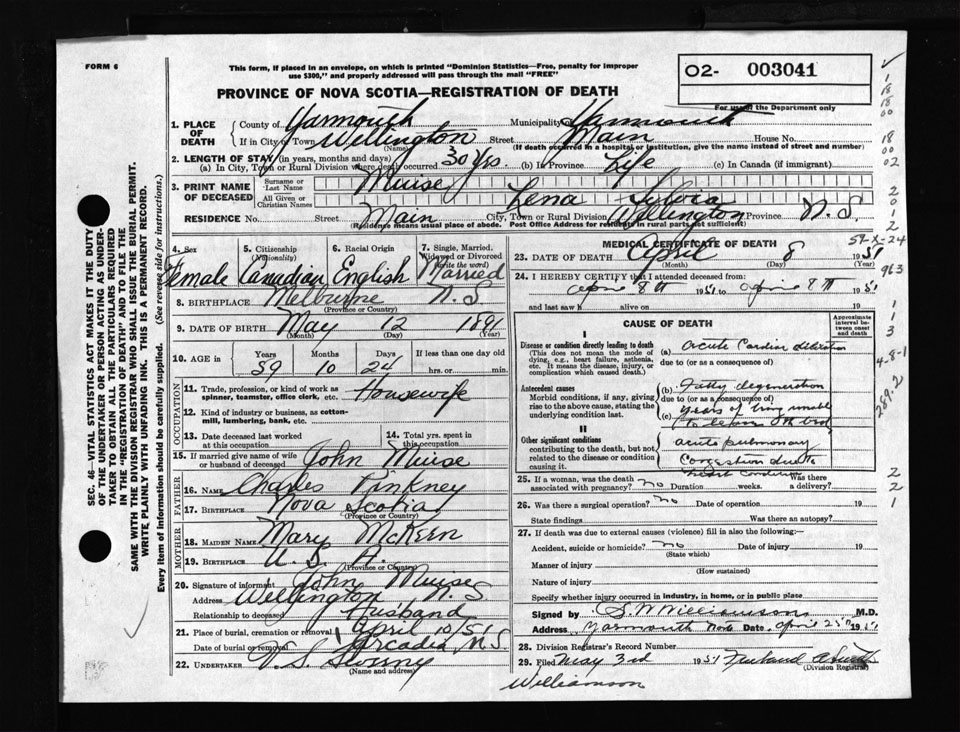 FORM 6
This form, if placed in an envelope, on which is printed "Dominion Statistics—Free, penalty for improper
use $300," and properly addressed will pass through the mail "FREE"
02- 003041
PROVINCE OF NOVA SCOTIA—REGISTRATION OF DEATH
For use of the Department only
1. PLACE OF DEATH County of Yarmouth Municipality Yarmouth
If in City or Town Wellington (Name) Street Main House No.
(If death occurred in a hospital or institution, give the name instead of street and number)
2. LENGTH OF STAY (in years, months and days)
(a) In City, Town or Rural Division where death occurred 30 yrs. (b) In Province Life (c) In Canada (if immigrant)
3. PRINT NAME OF DECEASED Surname or Last Name Muise
All Given or Christian Names Lena Sylvia
RESIDENCE No. Street Main City, Town or Rural Division Wellington Province N.S.
(Residence means usual place of abode. Post Office Address for residents in rural parts not sufficient)
4. Sex Female
5. Citizenship (Nationality) Canadian
6. Racial Origin English
7. Single, Married, Widowed or Divorced (write the word) Married
8. BIRTHPLACE Melburne N.S.
(Province or Country)
9. DATE OF BIRTH May 12 1891
(Month) (Day) (Year)
10. AGE in Years 59 Months 10 Days 24 If less than one day old hrs. or min.
OCCUPATION
11. Trade, profession, or kind of work as spinner, teamster, office clerk, etc. Housewife
12. Kind of industry or business, as cotton-mill, lumbering, bank, etc.
13. Date deceased last worked at this occupation
14. Total yrs. spent in this occupation
15. If married give name of wife or husband of deceased John Muise
FATHER
16. NAME Charles Pinkney
17. BIRTHPLACE Nova Scotia
(Province or Country)
MOTHER
18. MAIDEN NAME Mary McKern
19. BIRTHPLACE U.S.A.
(Province or Country)
20. Signature of informant John Muise
Address Wellington N.S.
Relationship to deceased Husband
21. Place of burial, cremation or removal April 10/51
Date of burial or removal Arcadia N.S.
22. UNDERTAKER V.S. Sweeny
(Name and address)
MEDICAL CERTIFICATE OF DEATH
23. DATE OF DEATH April 8 1951
(Month) (Day) (Year)
24. I HEREBY CERTIFY that I attended deceased from
April 8th 1951 to April 8th 1951
and last saw h alive on 19
CAUSE OF DEATH
Approximate interval between onset and death
I
Disease or condition directly leading to death
(This does not mean the mode of dying, e.g., heart failure, asthenia, etc. It means the disease, injury, or complication which caused death.)
(a) Acute Cardiac dilitation
due to (or as a consequence of)
Antecedent causes
Morbid conditions, if any, giving rise to the above cause, stating the underlying cause last.
(b) Fatty degeneration
due to (or as a consequence of)
(c) years of being unable
to leave the bed
II
Other significant conditions
contributing to the death, but not related to the disease or condition causing it.
acute pulmonary
congestion due to
heart condition
25. If a woman, was the death associated with pregnancy? no Duration weeks. Was there a delivery?
26. Was there a surgical operation? no Date of operation 19
State findings Was there an autopsy?
27. If death was due to external causes (violence) fill in also the following:—
Accident, suicide or homicide? no Date of injury 19
(State which)
Manner of injury
(How sustained)
Nature of injury
Specify whether injury occurred in industry, in home, or in public place
Signed by S.W. Williamson M.D.
Address Yarmouth North Date April 25th 1951
28. Division Registrar's Record Number
29. Filed May 3rd 1951
(Division Registrar)
Williamson
SEC. 46—VITAL STATISTICS ACT MAKES IT THE DUTY
OF THE UNDERTAKER OR PERSON ACTING AS UNDER-
TAKER TO OBTAIN ALL THE PARTICULARS REQUIRED
IN THE "REGISTRATION OF DEATH" AND TO FILE THE
SAME WITH THE DIVISION REGISTRAR WHO SHALL ISSUE THE BURIAL PERMIT.
WRITE PLAINLY WITH UNFADING INK. THIS IS A PERMANENT RECORD.
Every item of information should be carefully supplied. (See reverse side for instructions.)
1
18
18
00
18
00
02
2
2
0
1
2
52-X-24
963
1
1
3
4-8-1
289.2
2
2
1